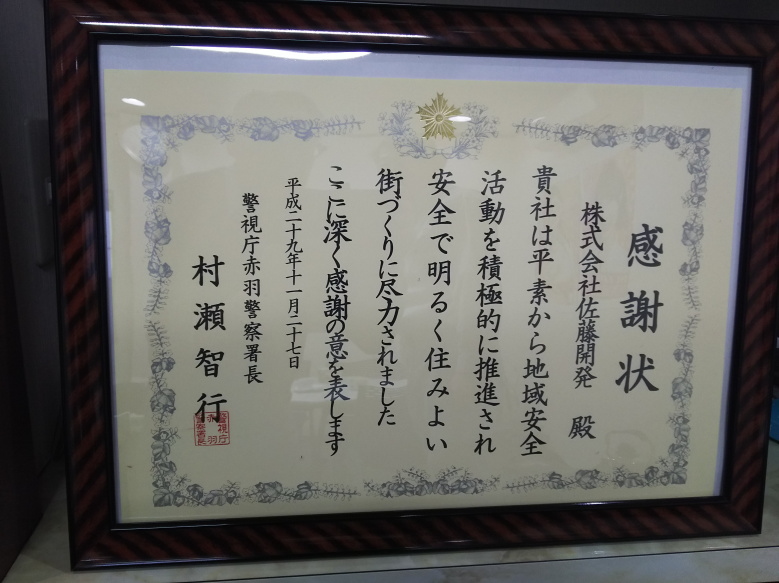 感謝状
株式会社佐藤開発 殿
貴社は平素から地域安全
活動を積極的に推進され
安全で明るく住みよい
街づくりに尽力されました
ここに深く感謝の意を表します
平成二十九年十一月二十七日
警視庁赤羽警察署長
村瀬智行
警視庁
赤羽
警察署長